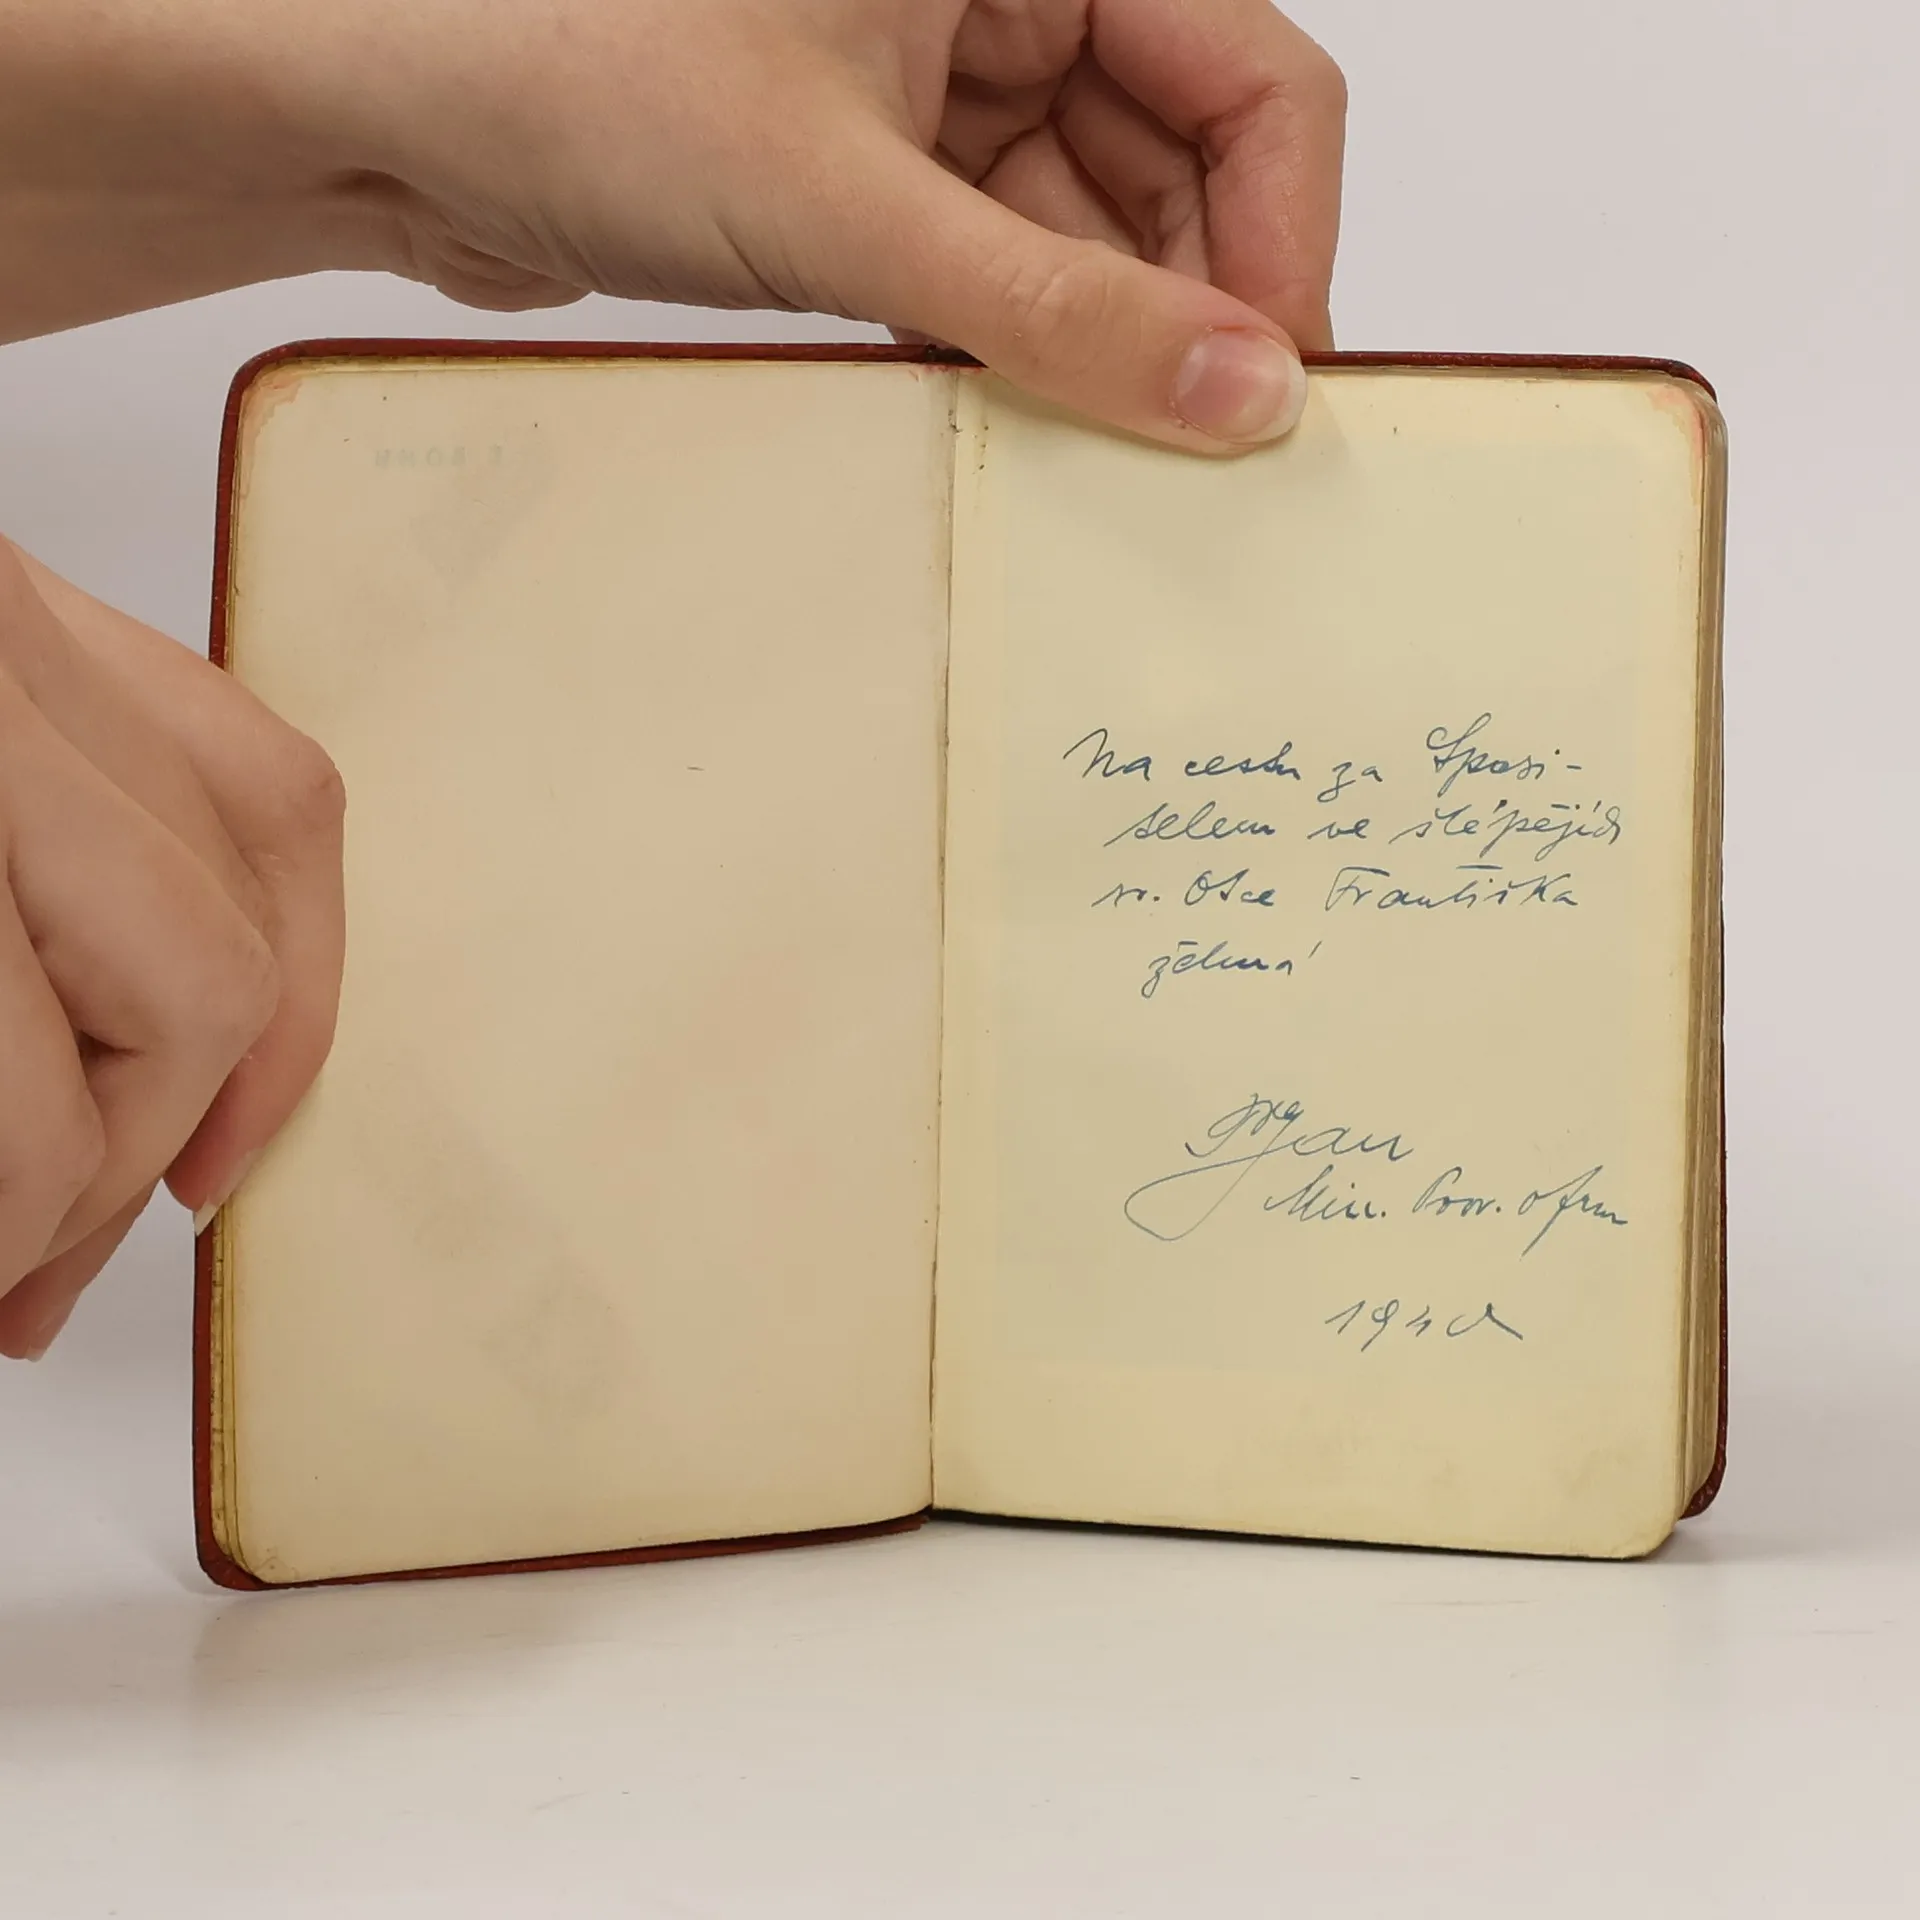 Na cestu za Spasi-
telem ve šlépějích
sv. Otce Františka
žehná
Jan
Min. Prov. ofm
1940